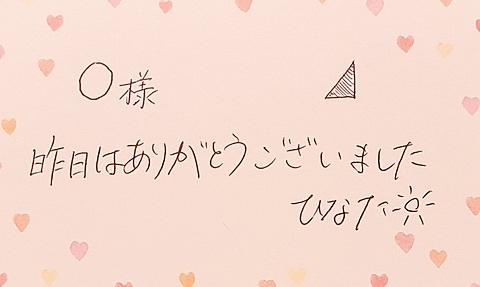 ○様
昨日はありがとうございました
ひなた